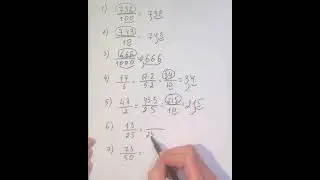 1) 738/100 = 7,38
2) 743/10 = 74,3
3) 666/1000 = 0,666
4) 17/5 = 17·2/5·2 = 34/10 = 3,4
5) 43/2 = 43·5/2·5 = 215/10 = 21,5
6) 13/25 =
7) 73/50 =